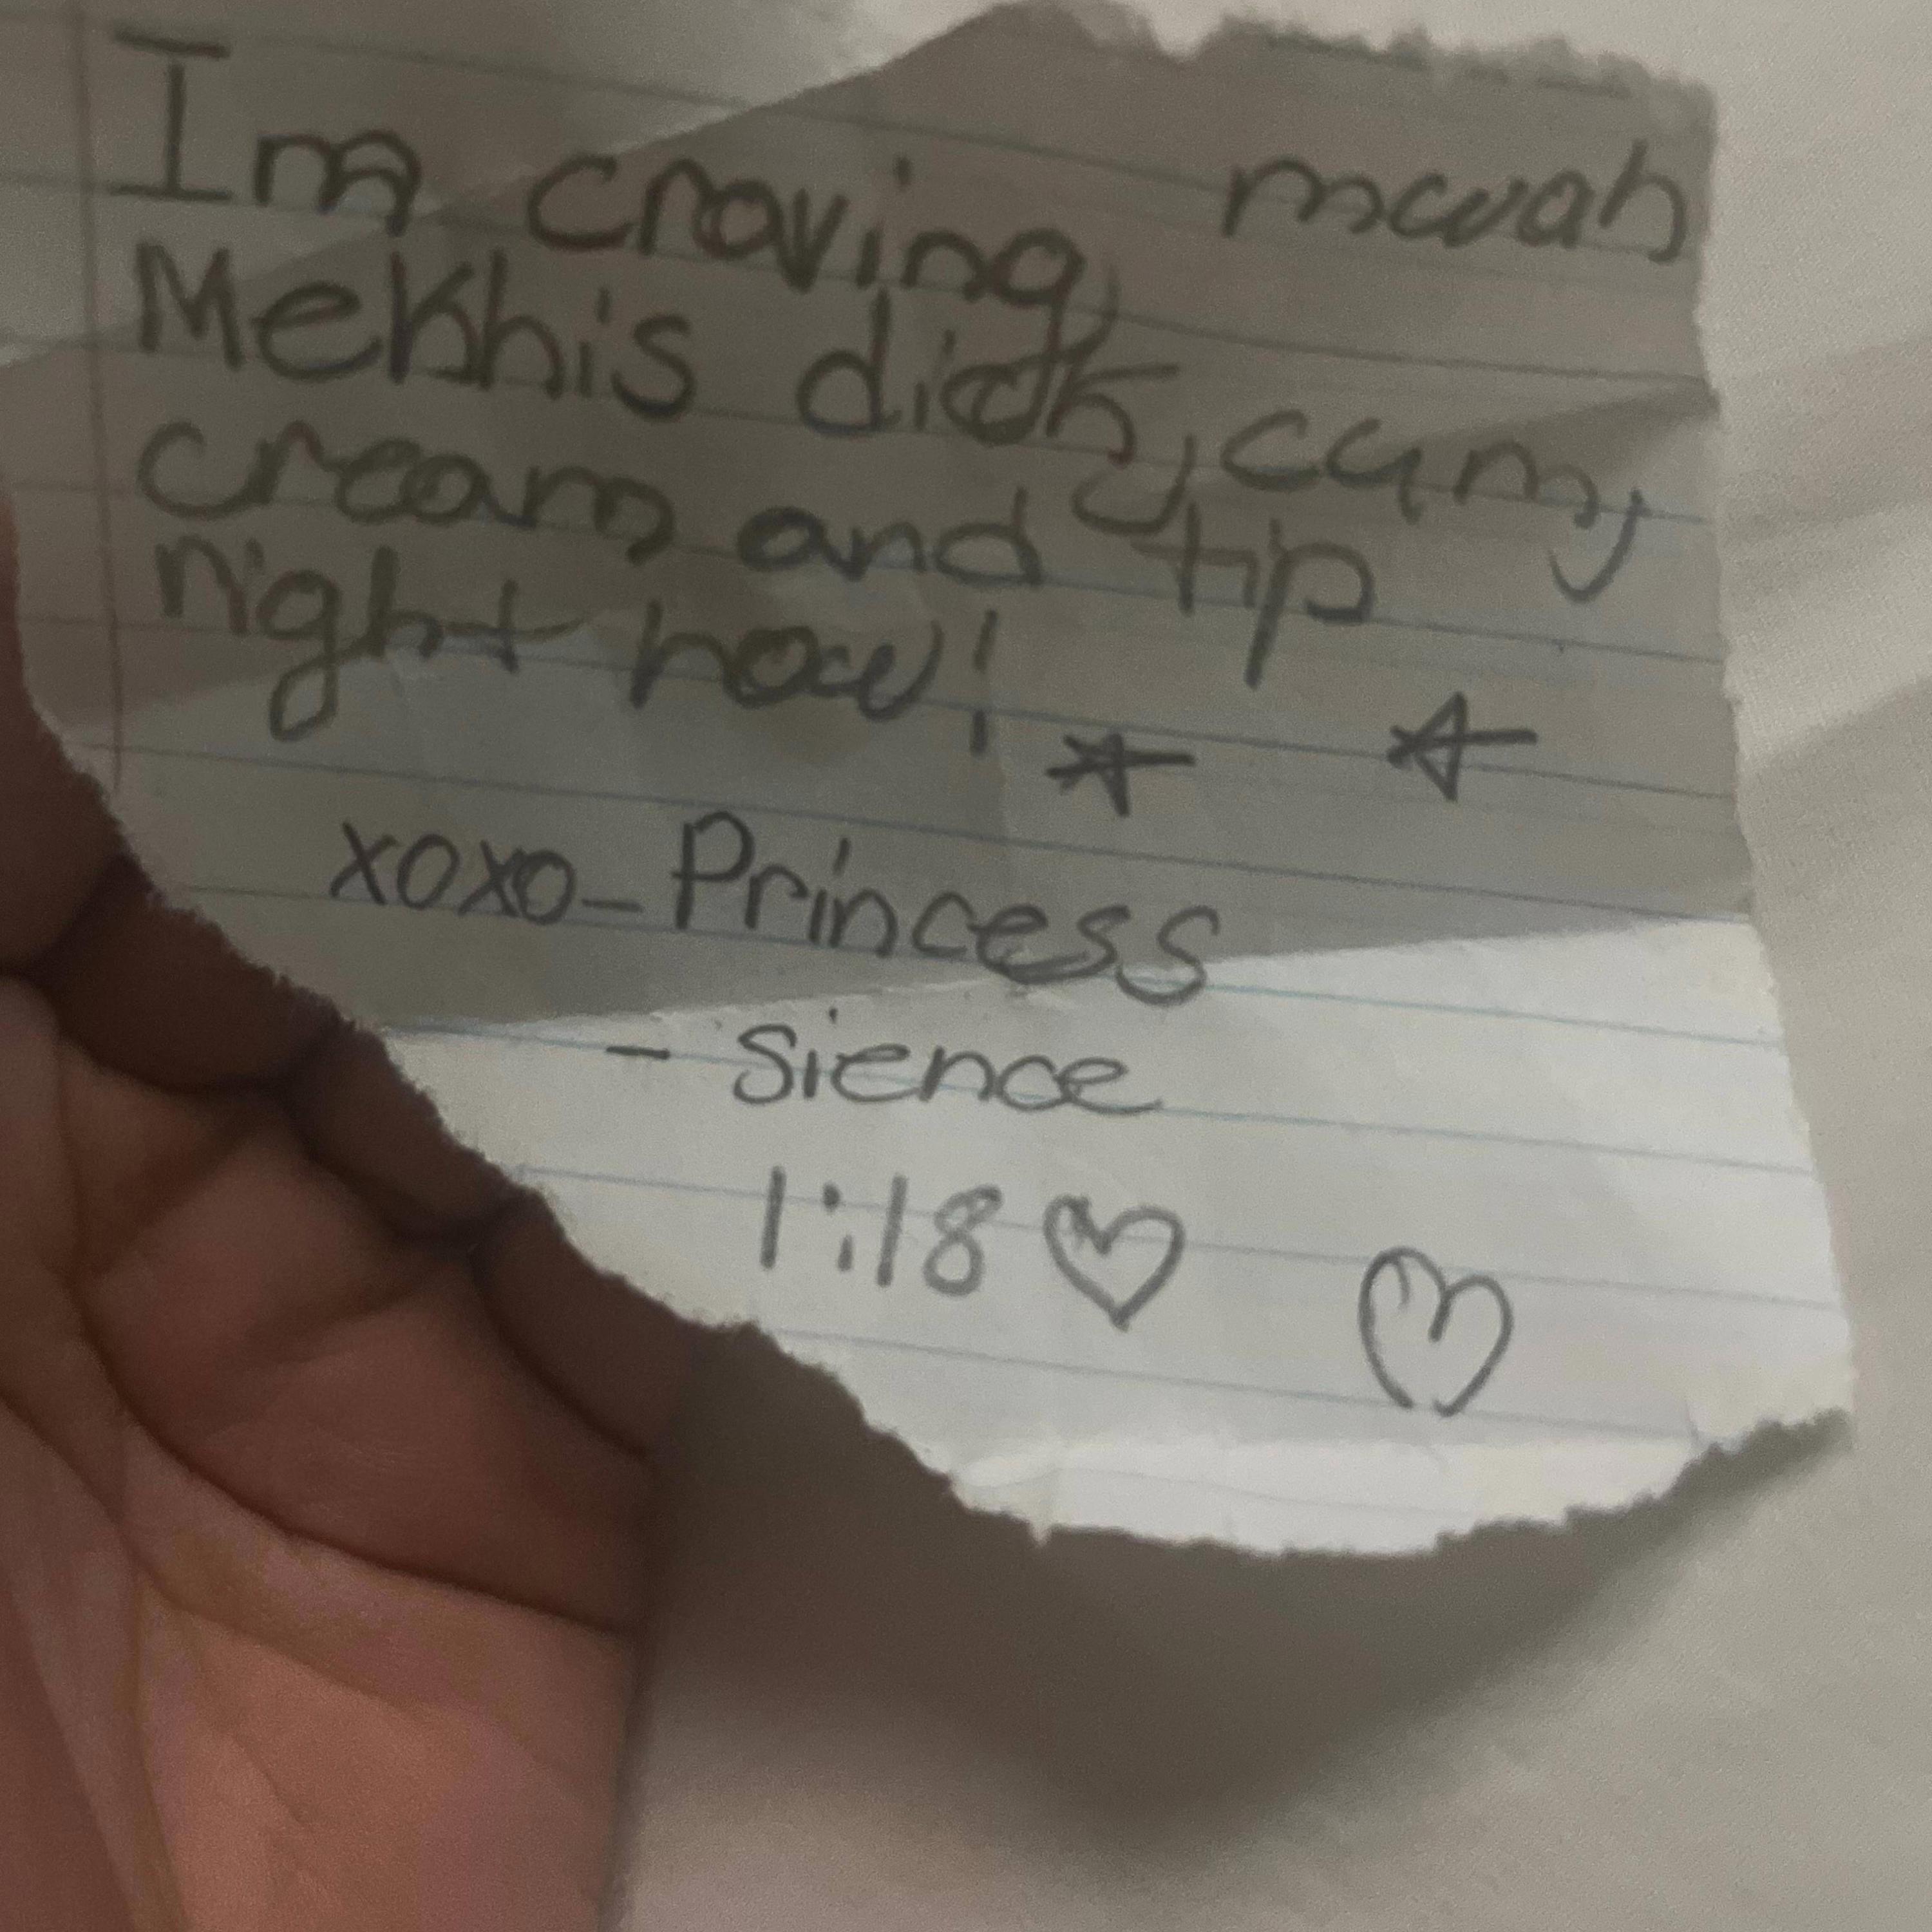 mwah
Im craving
Mekhis dick, cum,
cream and tip
right now!
xoxo-Princess
- Sience
1:18